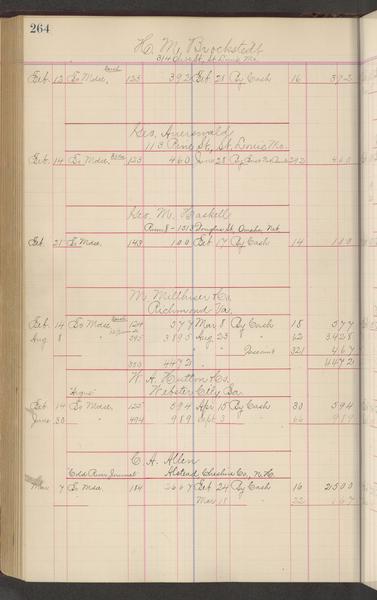 264
H. M. Brockstedt
314 St, St. Louis Mo.
Feb. 12 To Mdse. 123 392 Feb 21 By Cash 16 392
Geo. Auerswald
113 Pine St, St. Louis Mo.
Feb. 14 To Mdse. 123 460 June 28 By 292 460
Geo. M. Haskell
1313 Douglas St, Omaha Neb
Feb. 21 To Mdse. 143 100 Feb 17 By Cash 14 100
M. Millhiser & Co.
Richmond Va.
Feb. 14 To Mdse 124 577 Mar 8 By Cash 18 577
Aug 8 " 295 3895 Aug 23 " " 62 3428
Discount 321 467
4472 4472
W. A. Hutton & Co.
Webster City Ia.
Feb 14 To Mdse. 125 594 Apr 15 By Cash 30 594
June 30 " 494 989 Sept 3 " " 66 989
C. A. Allen
Alstead Cheshire Co, N.H.
Mar 7 To Mdse. 184 2667 Feb 24 By Cash 16 2500
Mar 18 22 167